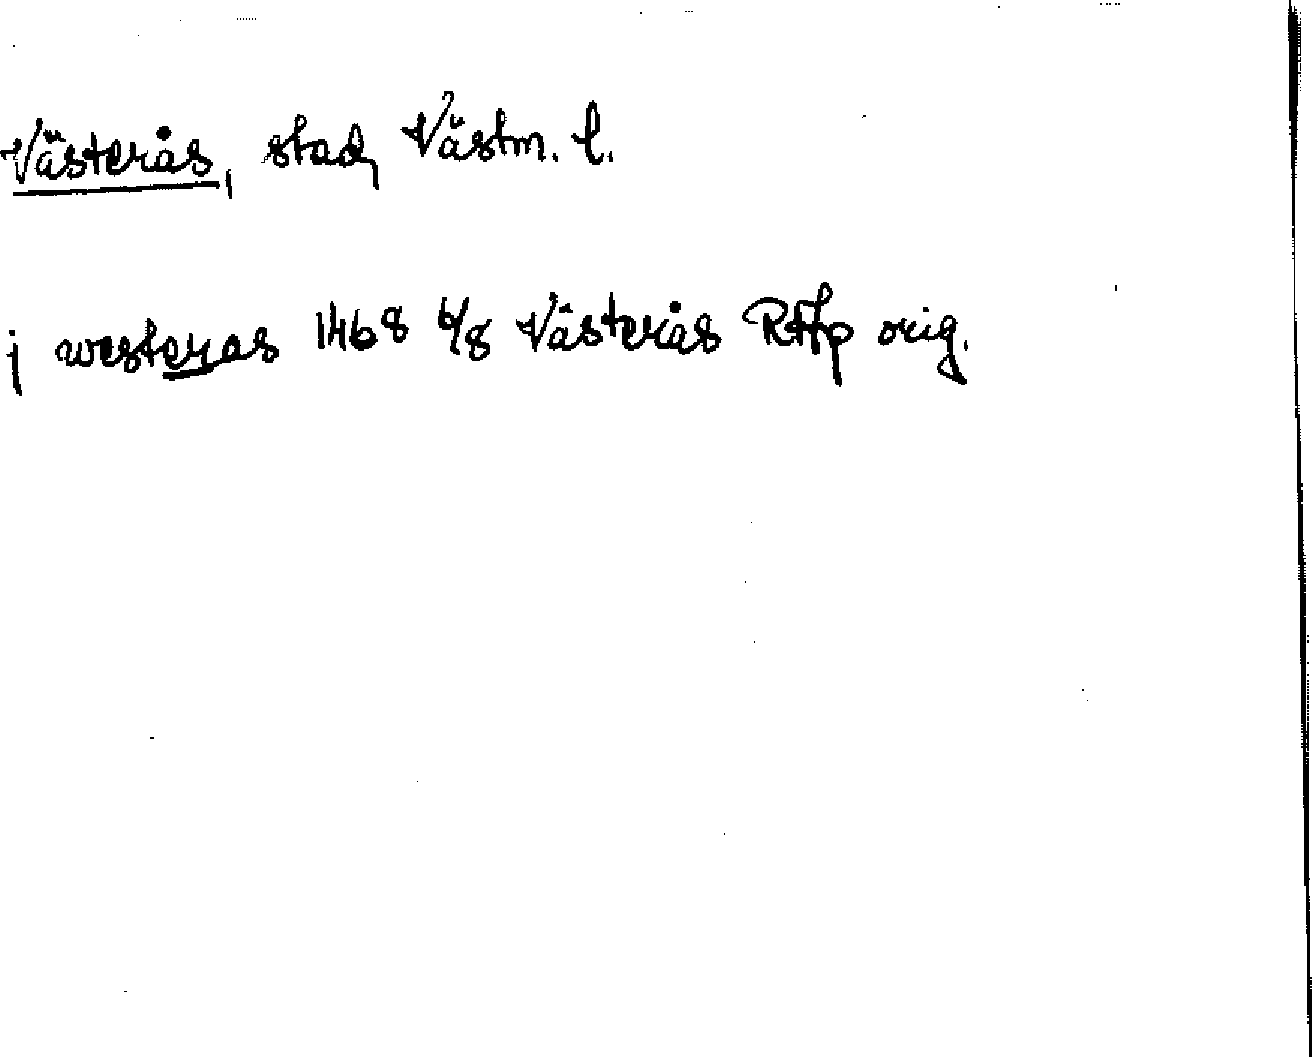 Västerås, stad, Västm. l.
j westeras 1468 6/8 Västerås RAp orig.